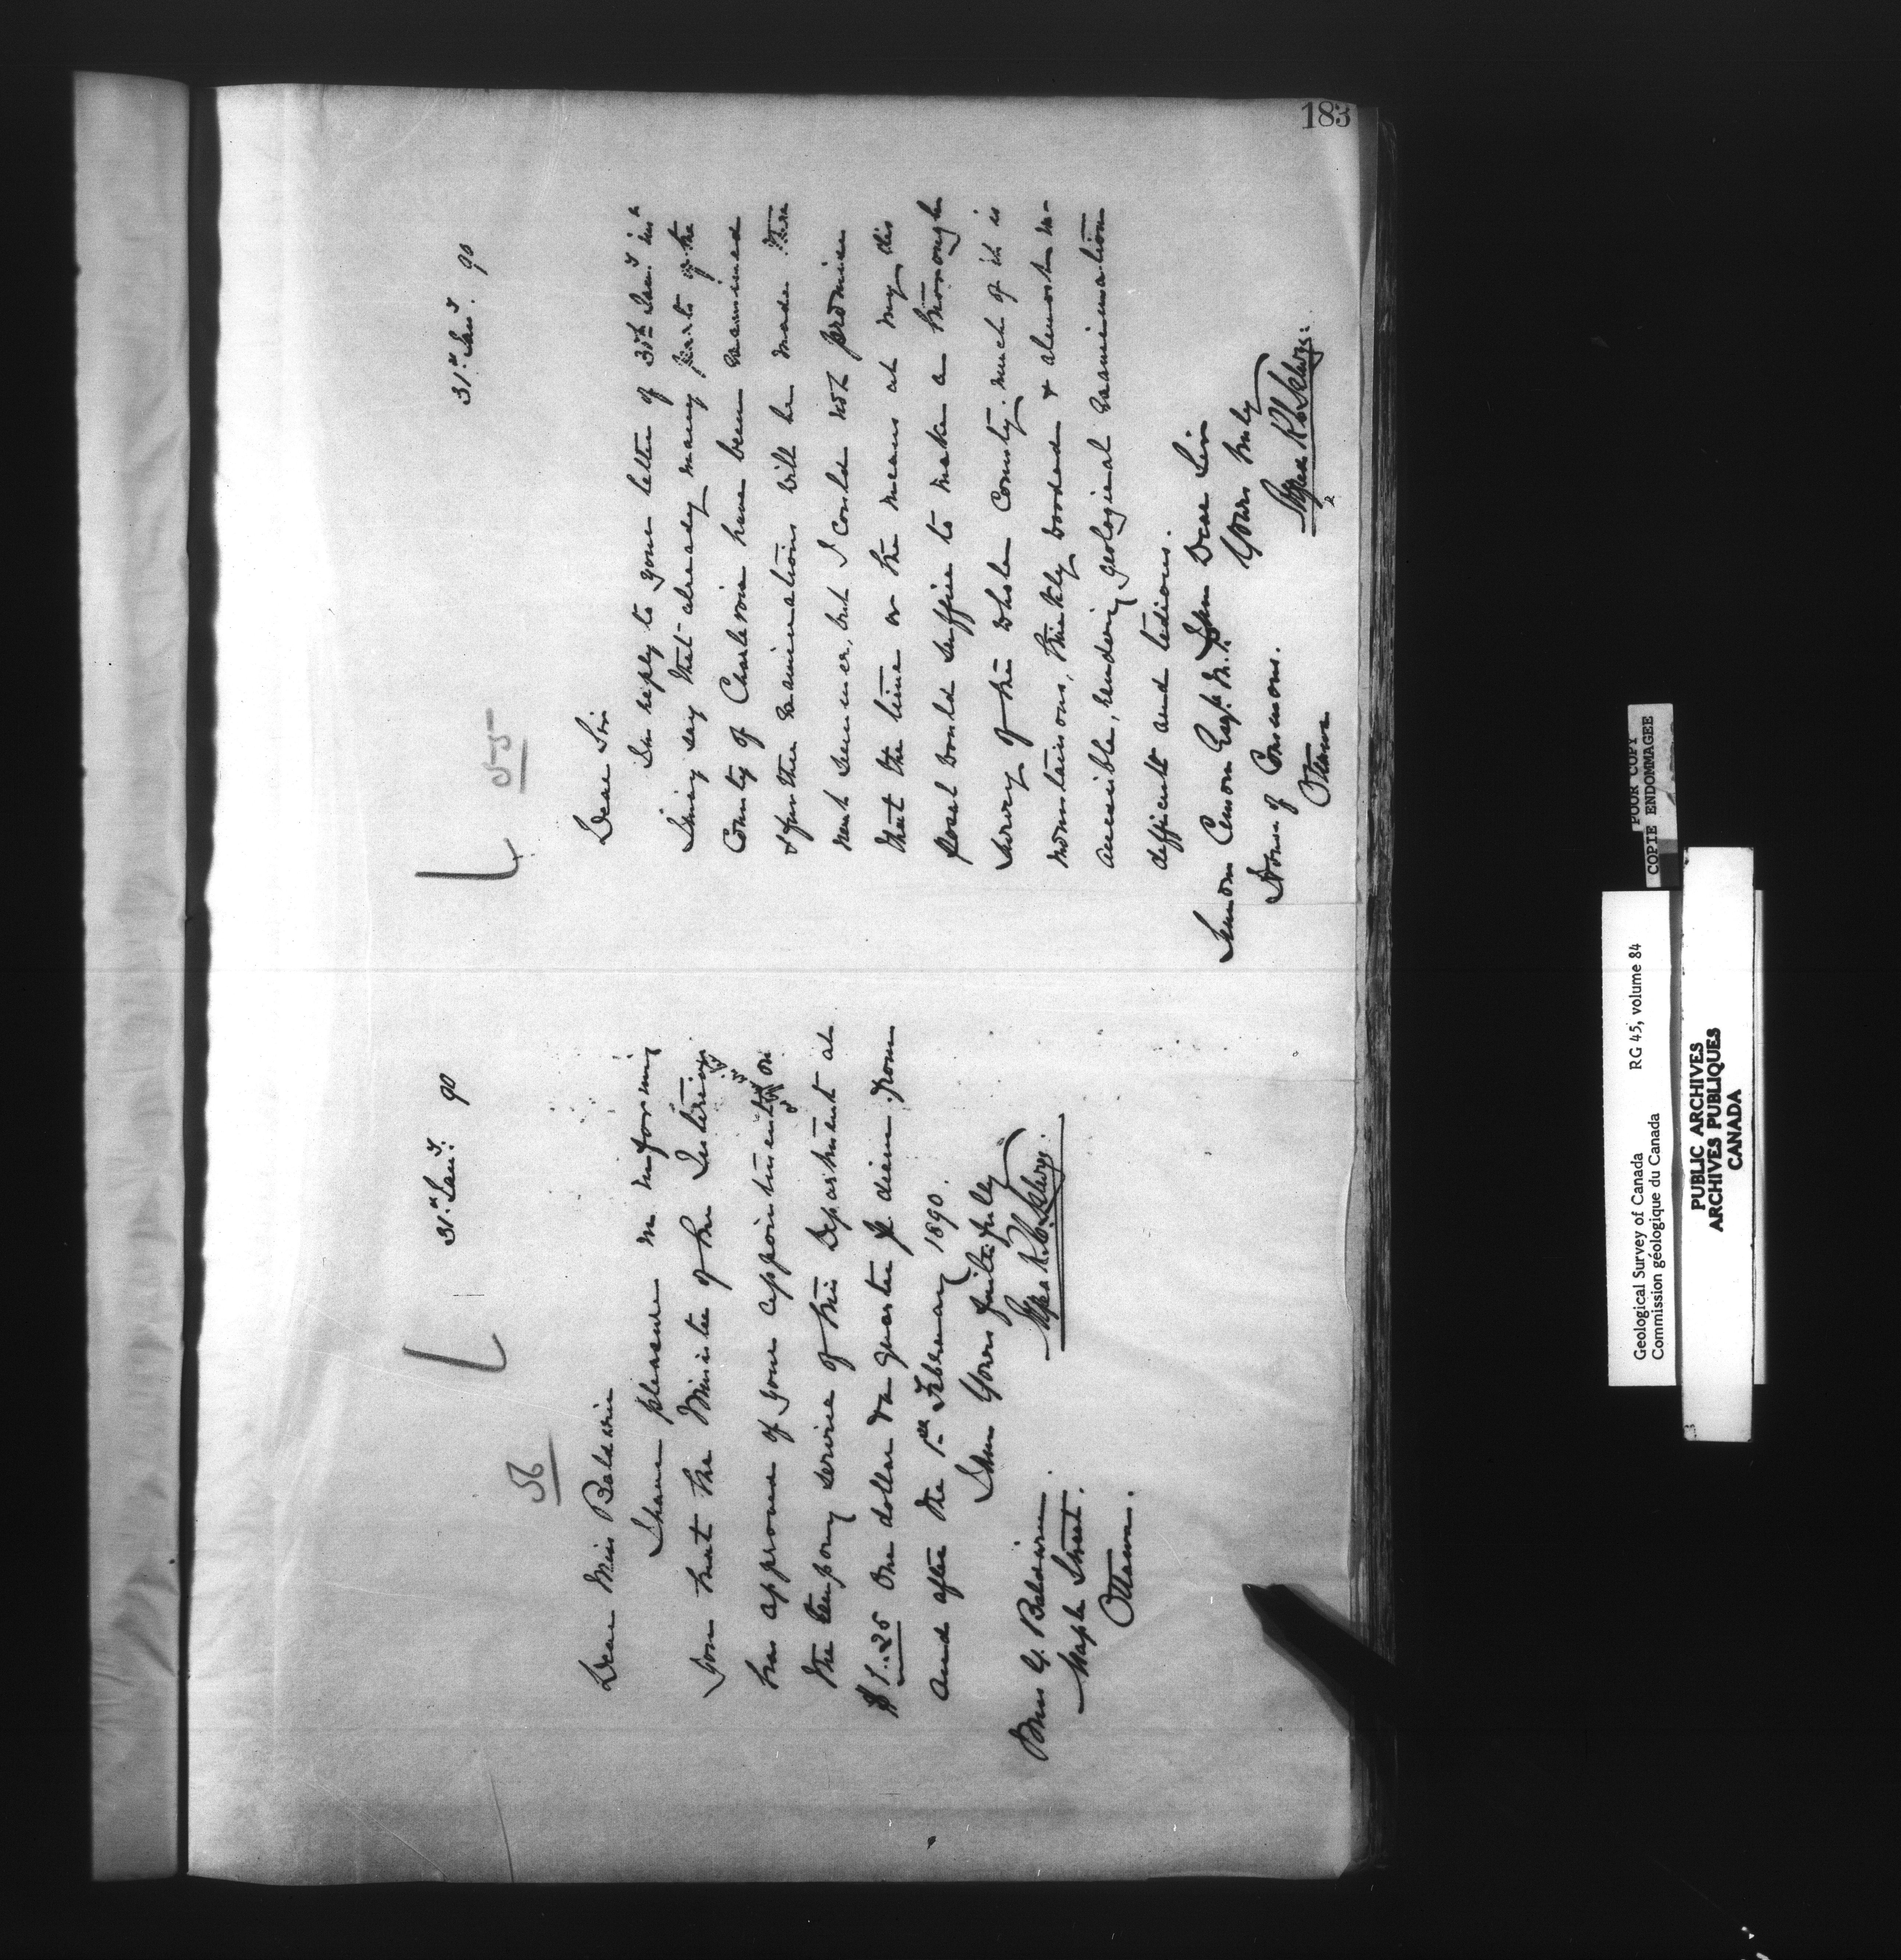 183
56
31st Jany. 90
Dear Miss Baldwin
I have pleasure in informing
you that the Minister of the Interior
has approved of your appointment on
the temporary service of this Department at
$1.25 One dollar & a quarter per diem from
and after the 1st February 1890.
I am Yours faithfully
Alfred R. C. Selwyn.
Miss G. Baldwin.
Maple Street.
Ottawa.
55
31st Jany. 90
Dear Sir
In reply to your letter of 30th Jany. inst
I may say that already many parts of the
County of Charlevoix have been examined
& further examinations will be made there
next summer, but I could not promise
that the time or the means at my dis
posal would suffice to make a thorough
survey of the whole County. much of it is
mountainous, thickly wooded & almost in-
accessible, rendering geological examination
difficult and tedious.
I am Dear Sir
Yours truly
Alfred R C Selwyn.
Simon Cimon Esq. M.P.
House of Commons.
Ottawa
POOR COPY
COPIE ENDOMMAGEE
Geological Survey of Canada RG 45, volume 84
Commission géologique du Canada
PUBLIC ARCHIVES
ARCHIVES PUBLIQUES
CANADA